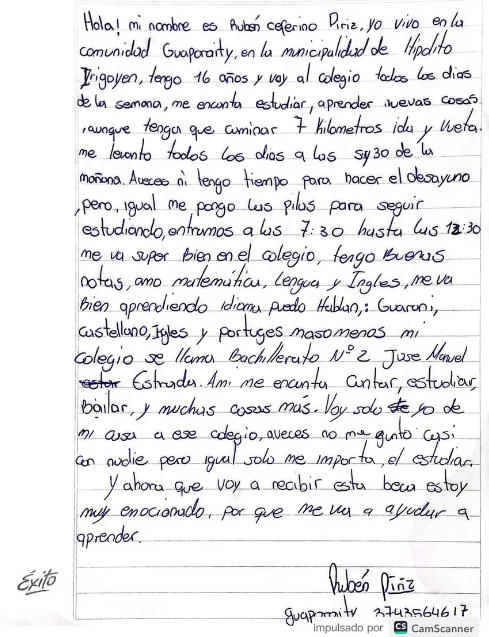 Hola! mi nombre es Rubén ceferino Piriz, yo vivo en la
comunidad Guaporaity, en la municipalidad de Hipolito
Irigoyen, tengo 16 años y voy al colegio todos los dias
de la semana, me encanta estudiar, aprender nuevas cosas
, aunque tenga que caminar 7 Kilometros ida y vuelta.
me levanto todos los dias a las 5y30 de la
mañana. Aveces ni tengo tiempo para hacer el desayuno
, pero, igual me pongo las pilas para seguir
estudiando, entramos a las 7:30 hasta las 12:30
me va super bien en el colegio, tengo Buenas
notas, amo matemática, Lengua y Ingles, me va
Bien aprendiendo idioma puedo Hablan,: Guarani,
castellano, Igles y portuges masomenos mi
colegio se llama Bachillerato Nº 2 Jose Manuel
Estrada. Ami me encanta cantar, estudiar,
bailar, y muchas cosas más. Voy solo yo de
mi casa a ese colegio, aveces no me gunto casi
con nadie pero igual solo me importa, el estudiar.
Y ahora que voy a recibir esta beca estoy
muy emocionado, por que me va a ayudar a
aprender.
Éxito
Rubén Piriz
guaporaity 3743564617
impulsado por CS CamScanner